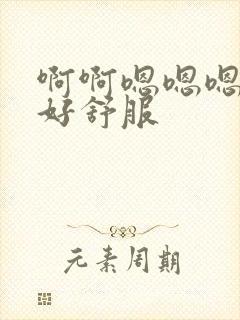 啊啊嗯嗯嗯
好舒服
元素周期